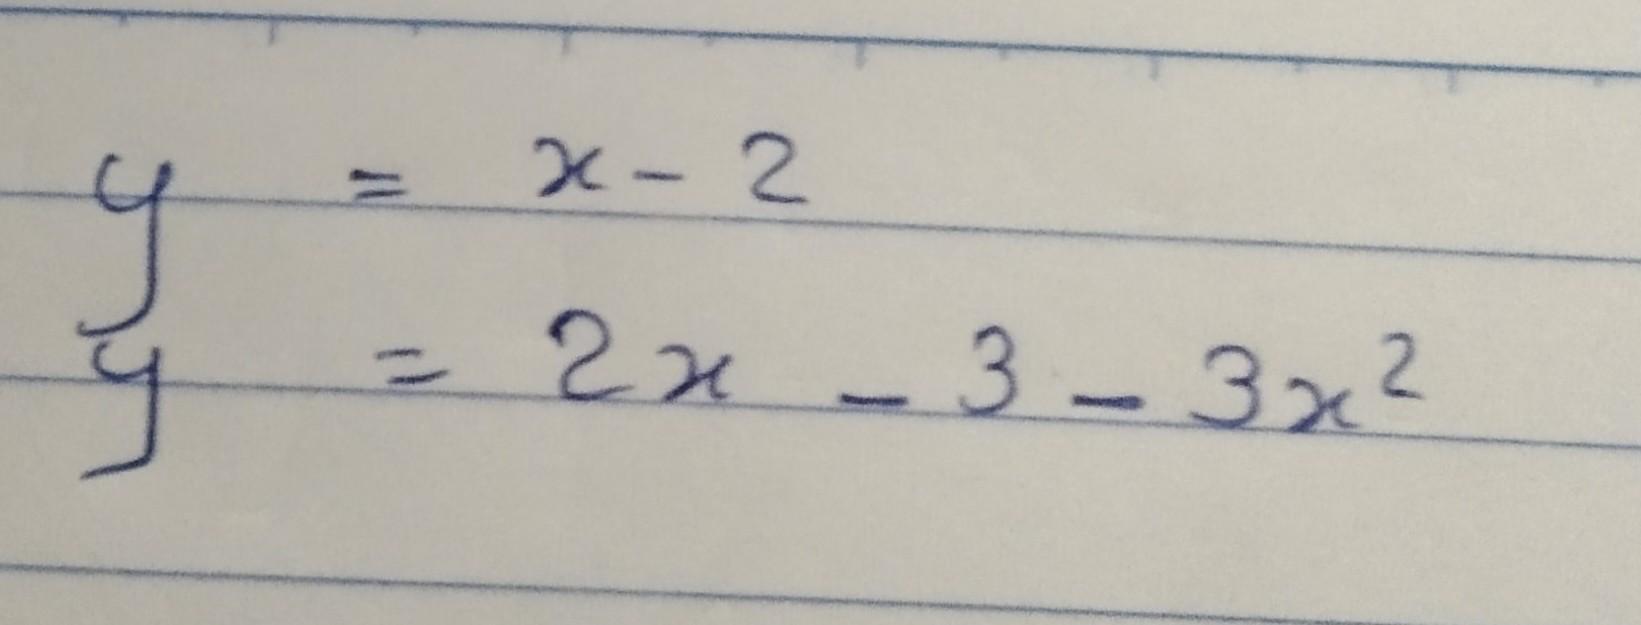 y = x - 2
y = 2x - 3 - 3x²